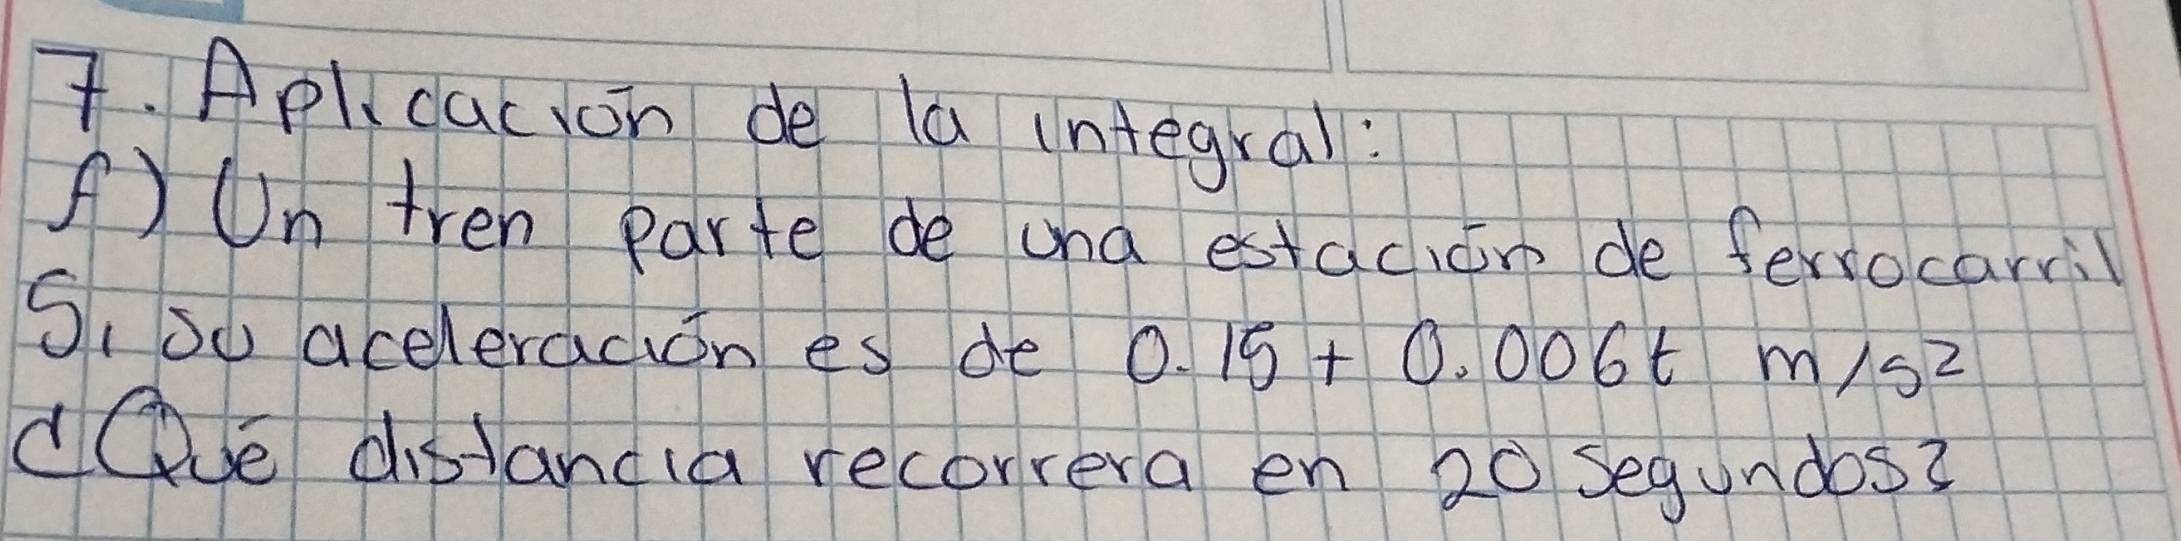 7. Aplicación de la integral:
f) Un tren parte de una estación de ferrocarril
Si su aceleración es de 0.15 + 0.006t m/s²
¿Qué distancia recorrera en 20 segundos?